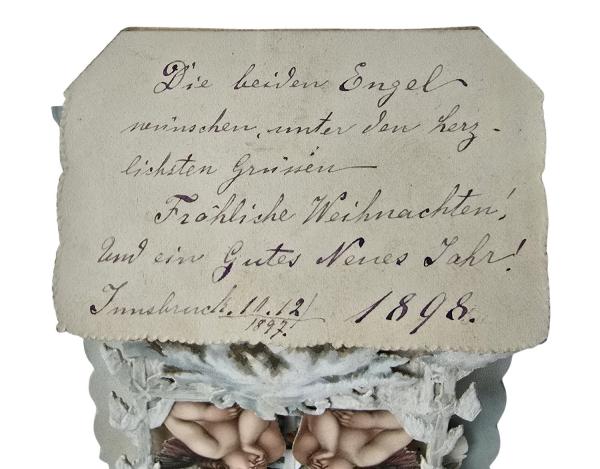 Die beiden Engel
wünschen, unter den herz-
lichsten Grüssen
Fröhliche Weihnachten!
Und ein Gutes Neues Jahr!
Innsbruck. 11.12! 1898.
1897.